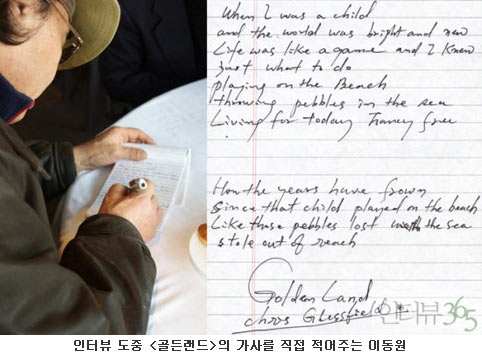 When I was a child
and the world was bright and new
Life was like a game and I knew
just what to do
playing on the Beach
throwing pebbles in the sea
Living for today free
How the years have
Since that child played on the beach
Like those pebbles lost the sea
stole out of reach
Golden Land
인터뷰365
인터뷰 도중 <골든랜드>의 가사를 직접 적어주는 이동원